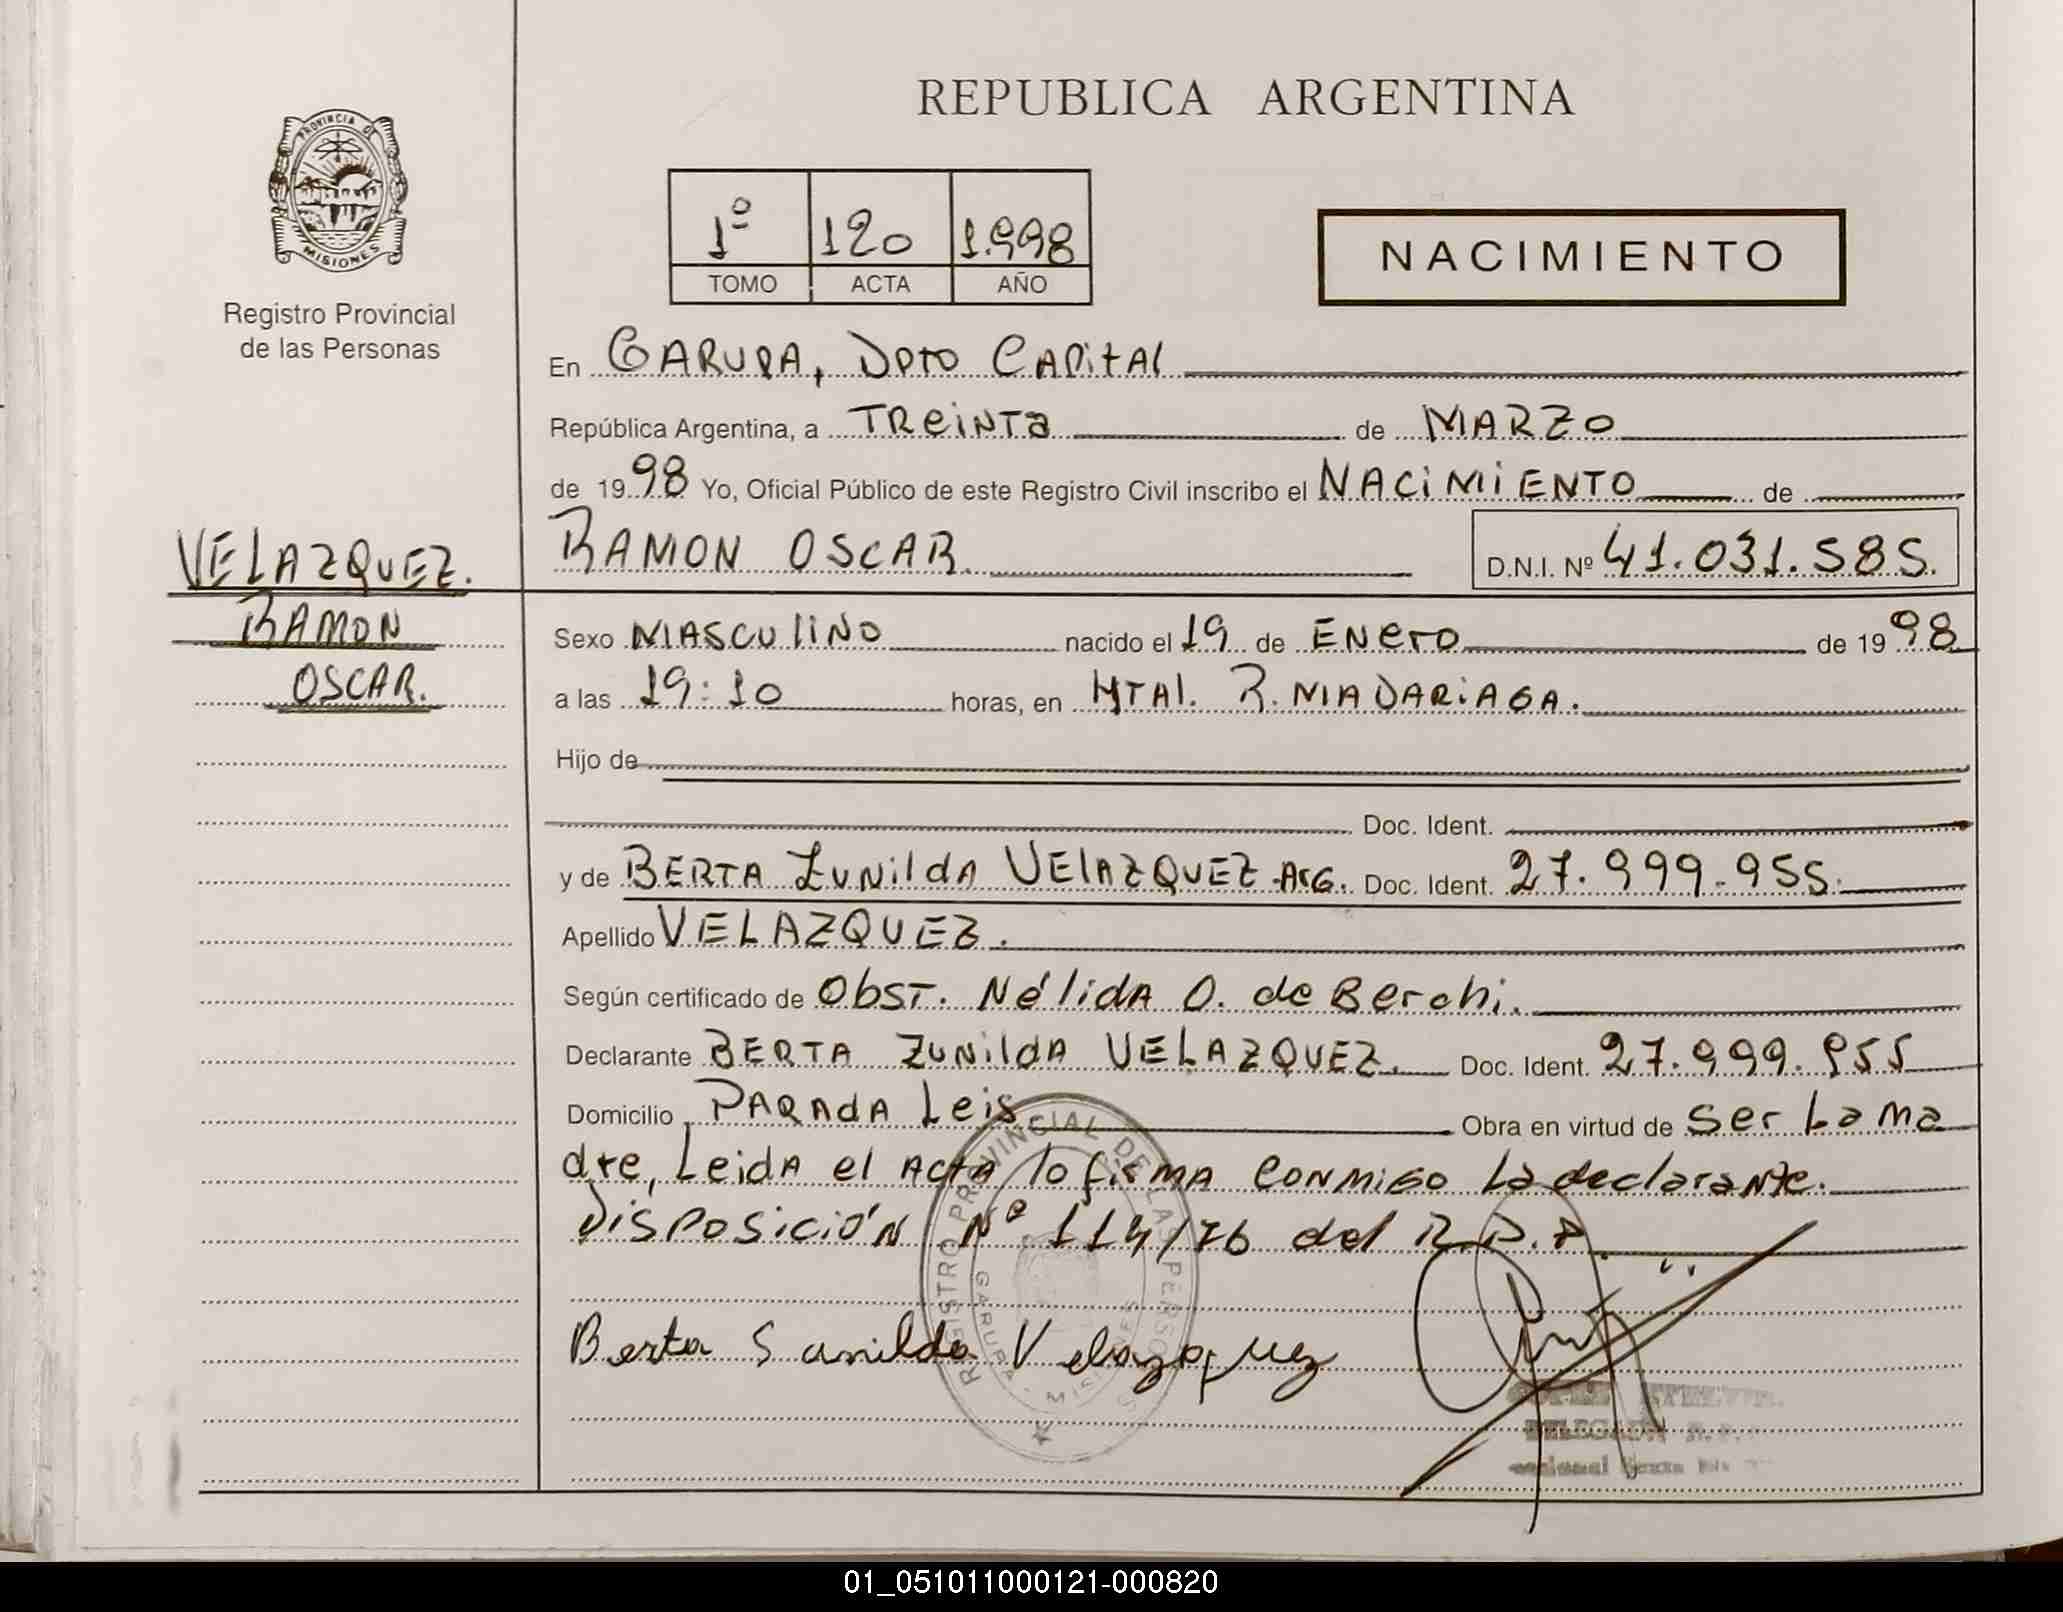 REPUBLICA ARGENTINA
PROVINCIA DE
MISIONES
Registro Provincial
de las Personas
1º 120 1.998
TOMO ACTA AÑO
NACIMIENTO
En GARUPA, Dpto CAPitAl
República Argentina, a TReiNTa de MARZO
de 1998 Yo, Oficial Público de este Registro Civil inscribo el NACiMiENTO de
VELAZQUEZ.
RAMON
OSCAR.
RAMON OSCAR. D.N.I. Nº 41.031.585.
Sexo MASCUliNO nacido el 19 de ENero de 1998
a las 19:10 horas, en HTAl. R. MADARiAGA.
Hijo de
Doc. Ident.
y de BERTA ZUNildA VElAZQUEZ-Arg. Doc. Ident. 27.999.955.
Apellido VELAZQUEZ.
Según certificado de Obst. NélidA O. de Berchi.
Declarante BERTA ZUNildA VELAZQUEZ. Doc. Ident. 27.999.955
Domicilio PARAdA Leis Obra en virtud de Ser La ma
dre, LeidA el ActA lo firMA CONMiGO La declaraNte.
DiSPOSiCióN Nº 114/76 del R.P.P.
Berta Sunilda Velazquez
REGISTRO PROVINCIAL DE LAS PERSONAS
GARUPA - MISIONES
DELEGADA R.P.
01_051011000121-000820